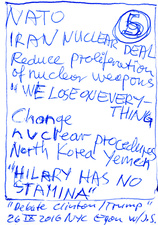 NATO
5
IRAN NUCLEAR DEAL
Reduce proliferation
of nuclear weapons
"WE LOSE ON EVERY-
THING
Change
nuclear procedures
North Korea Yemen
"HILARY HAS NO
STAMINA"
"Debate Clinton/Trump"
26 IX 2016 NYC Egon w/J.S.